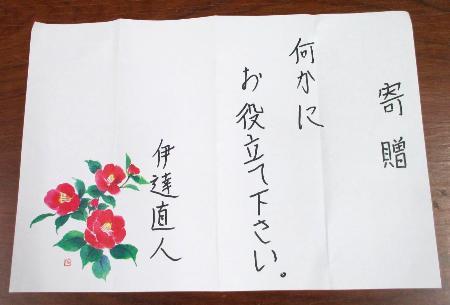 寄贈
何かに
お役立て下さい。
伊達直人